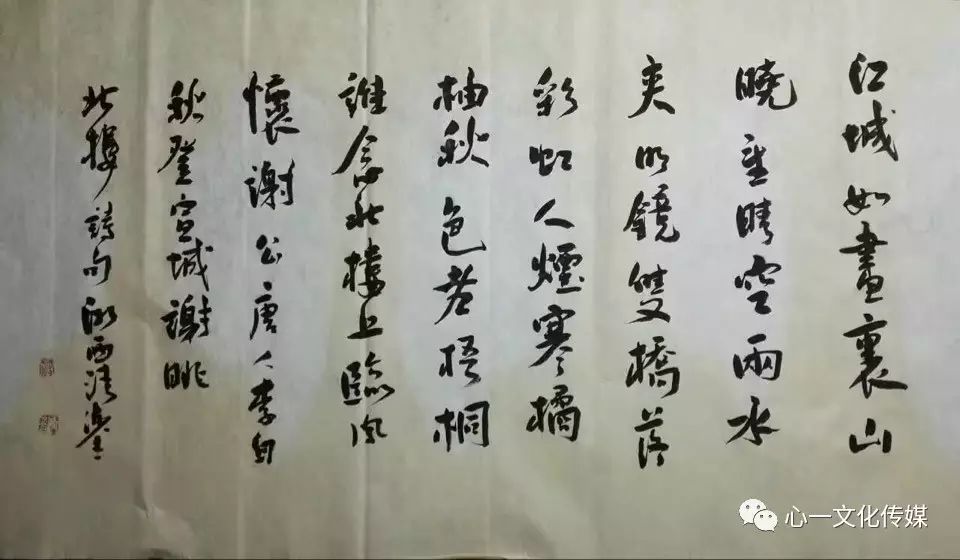 江城如畫裏山
曉望晴空兩水
夾明鏡雙橋落
彩虹人煙寒橘
柚秋色老梧桐
誰念北樓上臨風
懷謝公唐人李白
秋登宣城謝眺
北樓詩句
心一文化传媒